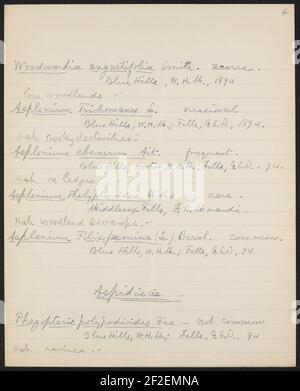 Woodwardia angustifolia Smith. scarce.
Blue Hills, W.H.M., 1894.
Low woodlands -
Asplenium Trichomanes L. occasional
Blue Hills, W.H.M.; Fells, G.E.D., 1894.
Hab. rocky declivities -
Asplenium ebeneum Ait. frequent.
Blue Hills, W.H.M.; Fells, G.E.D. - 94.
Hab. on ledges
Asplenium rare -
Middlesex Fells,
Hab. woodland swamps. -
Asplenium Filix-foemina (L.) Bernh. common.
Blue Hills, W.H.M.; Fells, G.E.D., 94
Aspidieae.
Phegopteris polypodioides Fée - not common
Blue Hills, W.H.M.; Fells, G.E.D., 94
Hab. ravines. -
alamy
Image ID: 2F2EMNA
www.alamy.com